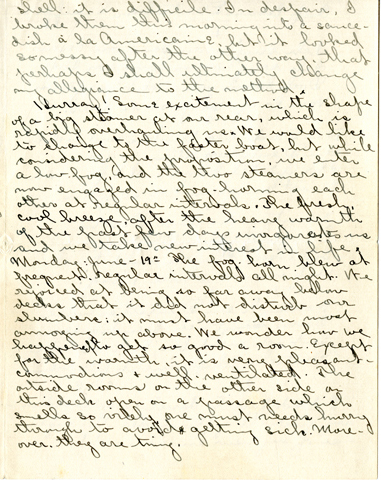 shell: it is difficile. In despair, I
broke them this morning into a sauce-
dish à la Americaine, but it looked
so messy after the other way, that
perhaps I shall ultimately change
my allegiance to the method.
Hurray! Some excitement in the shape
of a big steamer at our rear, which is
rapidly overhauling us. We would like
to change to the faster boat, but while
considering the proposition, we enter
a low fog, and the two steamers are
now engaged in fog-horning each
other at regular intervals. The fresh,
cool breeze after the heavy warmth
of the first few days invigorates us
and we take new interest in life.
Monday-June-19th The fog-horn blew at
frequent, regular intervals all night. We
rejoiced at being so far away below
decks that it did not disturb our
slumbers: it must have been most
annoying up above. We wonder how we
happened to get so good a room. Except
for the warmth, it is very pleasant-
commodious & well ventilated. The
outside rooms on the other side on
this deck open on a passage which
smells so vilely one must needs hurry
through to avoid getting sick. More-
over, they are tiny.